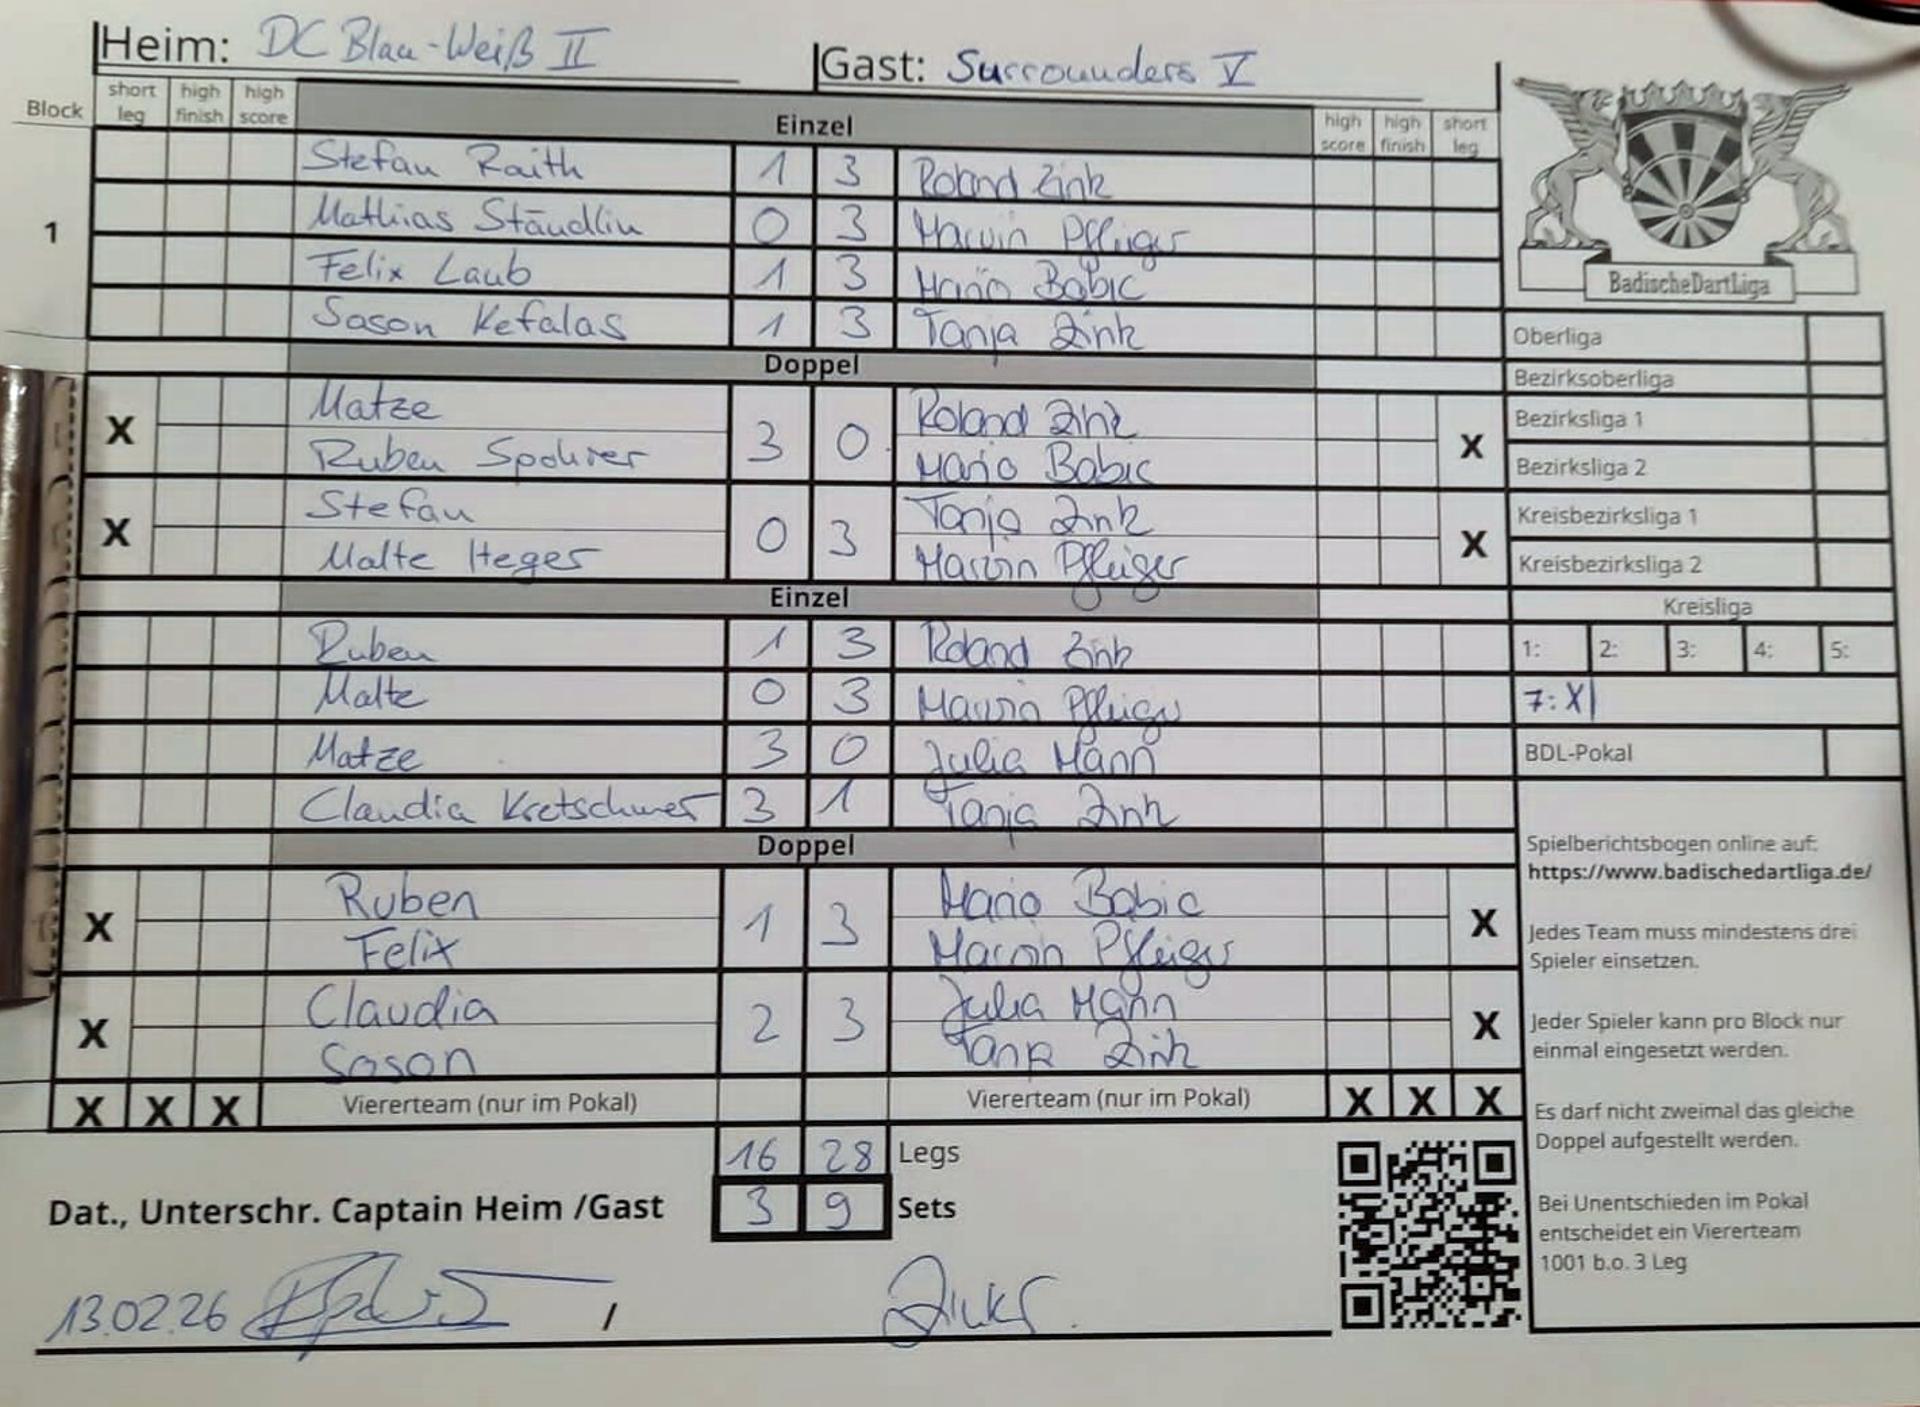 Heim: DC Blau-Weiß II
Gast: Surrounders V
Block short leg high finish high score Einzel high score high finish short leg
1
Stefan Raith 1 3 Roland Zink
Mathias Ständlin 0 3 Marvin Pfleiger
Felix Laub 1 3 Mario Babic
Sason Kefalas 1 3 Tanja Zink
Doppel
X Matze 3 0 Roland Zink X
Ruben Spohrer Mario Babic
X Stefan 0 3 Tanja Zink X
Malte Heger Marvin Pfleiger
Einzel
Ruben 1 3 Roland Zink
Malte 0 3 Marvin Pfleiger
Matze 3 0 Julia Mann
Claudia Kretschmer 3 1 Tanja Zink
Doppel
X Ruben 1 3 Mario Babic X
Felix Marvin Pfleiger
X Claudia 2 3 Julia Mann X
Sason Tanja Zink
X X X Viererteam (nur im Pokal) Viererteam (nur im Pokal) X X X
16 28 Legs
Dat., Unterschr. Captain Heim /Gast 3 9 Sets
13.02.26 /
BadischeDartLiga
Oberliga
Bezirksoberliga
Bezirksliga 1
Bezirksliga 2
Kreisbezirksliga 1
Kreisbezirksliga 2
Kreisliga
1: 2: 3: 4: 5:
7: X
BDL-Pokal
Spielberichtsbogen online auf:
https://www.badischedartliga.de/
Jedes Team muss mindestens drei
Spieler einsetzen.
Jeder Spieler kann pro Block nur
einmal eingesetzt werden.
Es darf nicht zweimal das gleiche
Doppel aufgestellt werden.
Bei Unentschieden im Pokal
entscheidet ein Viererteam
1001 b.o. 3 Leg